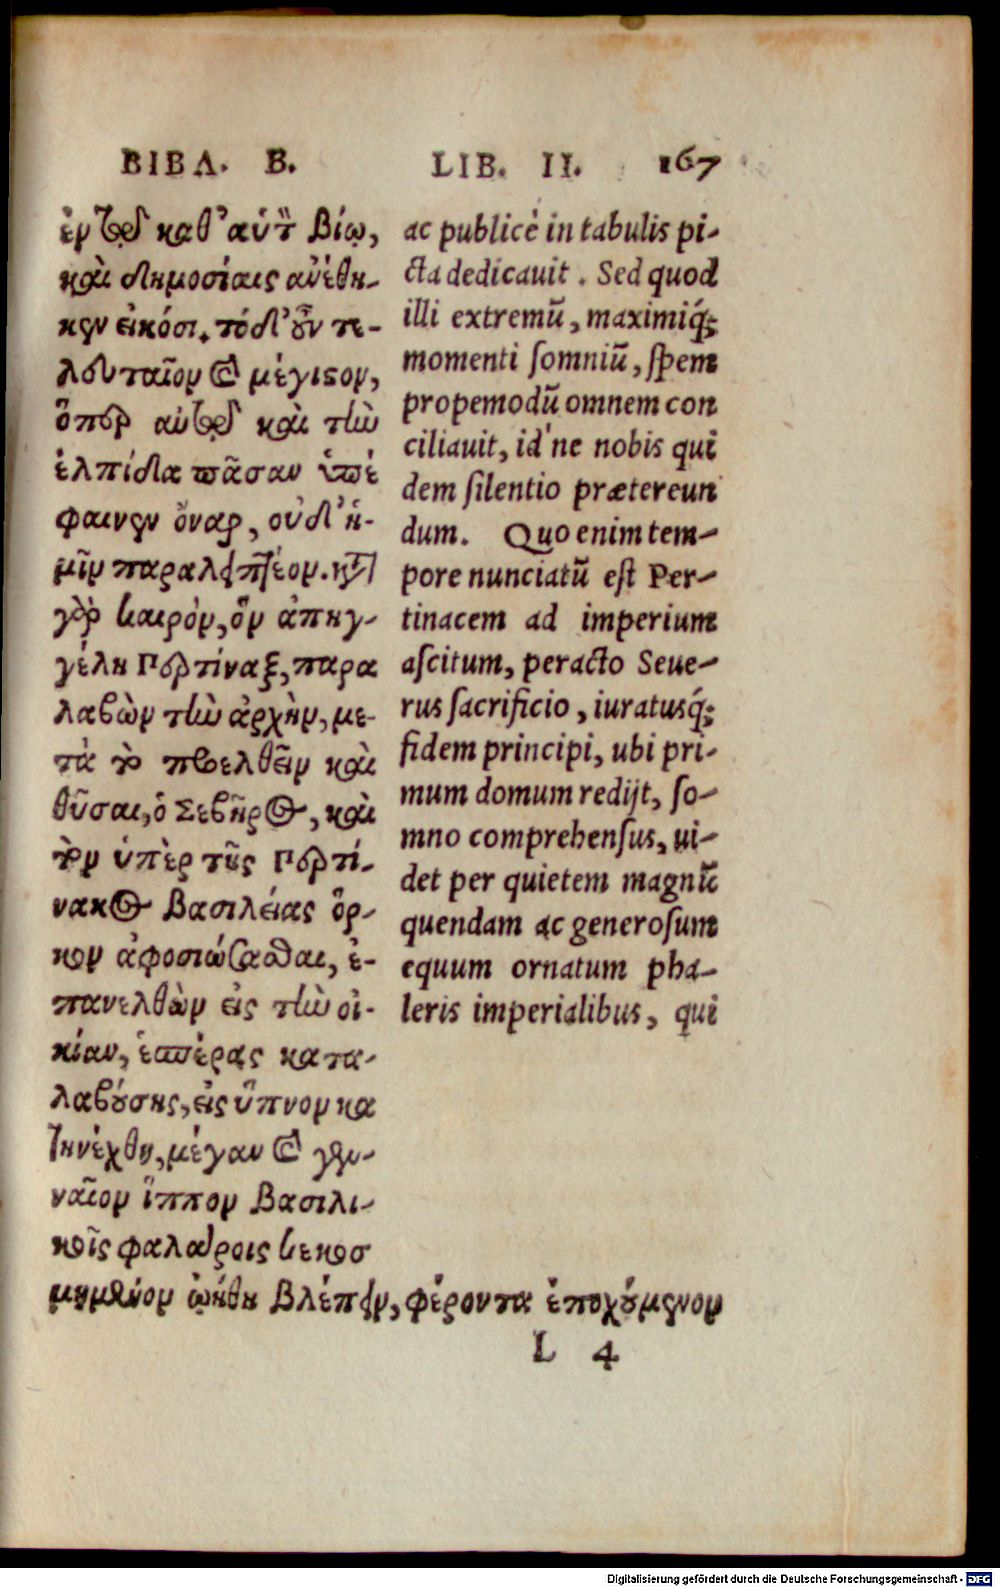 ΒΙΒΛ. Β. LIB. II. 167
ἐν τῷ καθ' αὑτὸν βίῳ,
καὶ δημοσίαις ἀνέθη-
κεν εἰκόσι. τὸ δ' οὖν τε-
λευταῖον καὶ μέγιστον,
ὅπερ αὐτῷ καὶ τὴν
ἐλπίδα πᾶσαν ὑπέ
φαινεν ὄναρ, οὐδ' ἡ-
μῖν παραλειπτέον. κατὰ
γὰρ καιρὸν, ὃν ἀπηγ-
γέλη Περτίναξ, παρα
λαβὼν τὴν ἀρχὴν, με-
τὰ τὸ προελθεῖν καὶ
θῦσαι, ὁ Σεβῆρος, καὶ
τὸν ὑπὲρ τῆς Περτί-
νακος βασιλείας ὅρ-
κον ἀφοσιώσασθαι, ἐ-
πανελθὼν εἰς τὴν οἰ-
κίαν, ἑσπέρας κατα-
λαβούσης, εἰς ὕπνον κα
τηνέχθη, μέγαν καὶ γεν-
ναῖον ἵππον βασιλι-
κοῖς φαλάροις κεκοσ
μημένον ᾠήθη βλέπειν, φέροντα ἐποχούμενον
ac publicè in tabulis pi-
cta dedicauit. Sed quod
illi extremũ, maximiq́;
momenti somniũ, spem
propemodũ omnem con
ciliauit, id'ne nobis qui
dem silentio prætereun
dum. Quo enim tem-
pore nunciatũ est Per-
tinacem ad imperium
ascitum, peracto Seue-
rus sacrificio, iuratusq́;
fidem principi, ubi pri-
mum domum redijt, so-
mno comprehensus, ui-
det per quietem magnũ
quendam ac generosum
equum ornatum pha-
leris imperialibus, qui
L 4
Digitalisierung gefördert durch die Deutsche Forschungsgemeinschaft - DFG